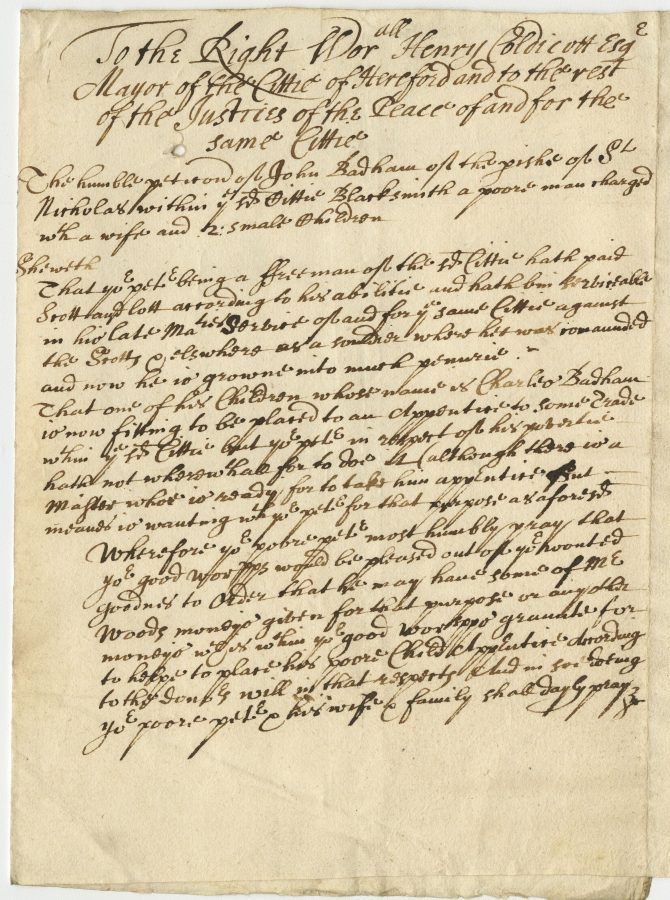 To the Right Wor all Henry Coldicott Esq e
Mayor of the Cittie of Hereford and to the rest
of the Justices of the Peace of and for the
same Cittie
The humble peticon of John Badham of the pishe of St
Nicholas within ye sd Cittie Blacksmith a poore man charged
wth a wife and 2: smale Children
Sheweth
That yor petr being a ffreeman of the sd Cittie hath paid
Scott and lott according to his abilitie and hath bin serviceable
in his late Maties Service of and for ye same Cittie against
the Scotts & elswhere as a souldier where hee was comaunded
and now he is growne into much penurie
That one of his Children whose name is Charles Badham
is now fitting to be placed to an Apprentice to some Trade
wthin ye sd Cittie but yor petr in respect of his povertie
hath not wherewthall for to doe it (although there is a
Master whoe is ready for to take him apprentice But
meanes is wanting wth yor petr for that purpose as aforesd
Wherefore yor poore petr most humbly pray that
yor good Worpps would be pleased out of yor wonted
goodnes to Order that he may have some of Mr
Woods moneys given for that purpose or any other
moneys wch is wthin yor good Worpps graunte for
to helpe to place his poore Child Apprentice According
to the donors will in that respect And in soe doeing
yor poore petr & his wife & family shall dayly pray &c